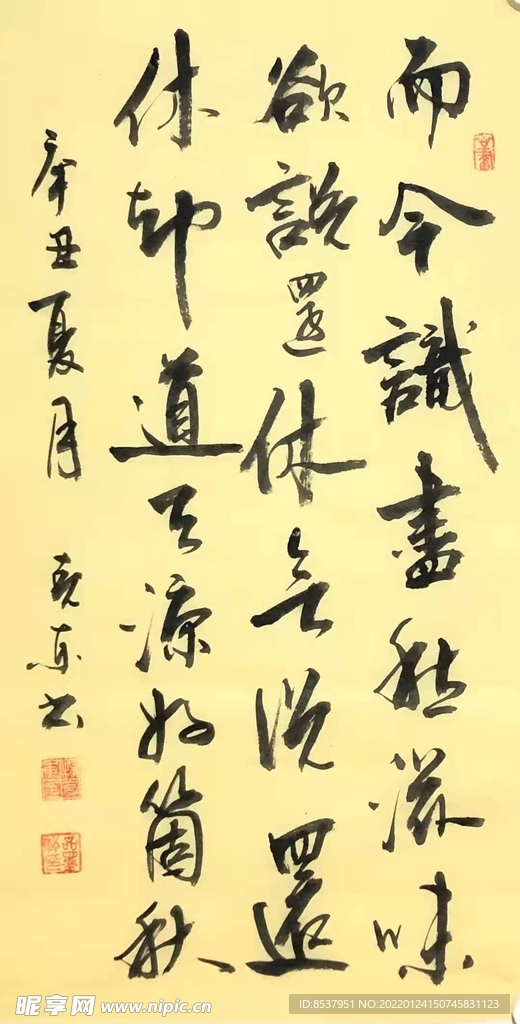 而今識盡愁滋味
欲說還休說還
休卻道天涼好箇秋
辛丑夏月 东书
昵享网 www.nipic.cn
ID:8537951 NO:20220124150745831123